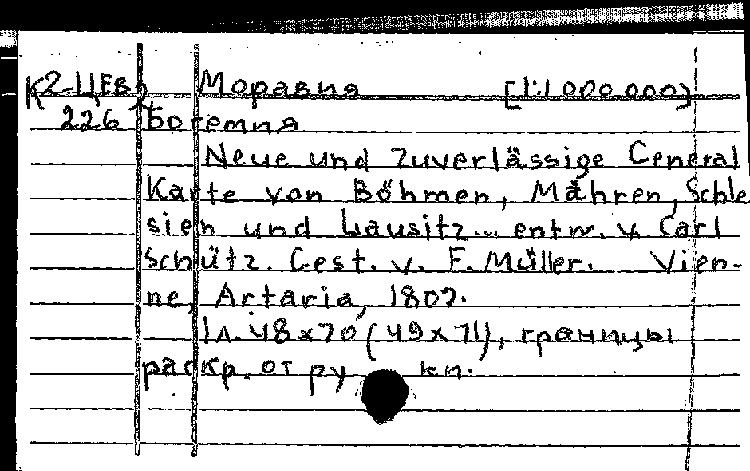 К2-ЦЕВ Моравия [1:1.000.000]
226 Богемия
Neue und zuverlässige General
Karte von Böhmen, Mähren, Schle
sien und Lausitz... entw. v. Carl
Schütz. Gest. v. F. Müller. Vien-
ne, Artaria, 1807.
1 л. 48x70 (49x71), границы
раскр. от ру кп.